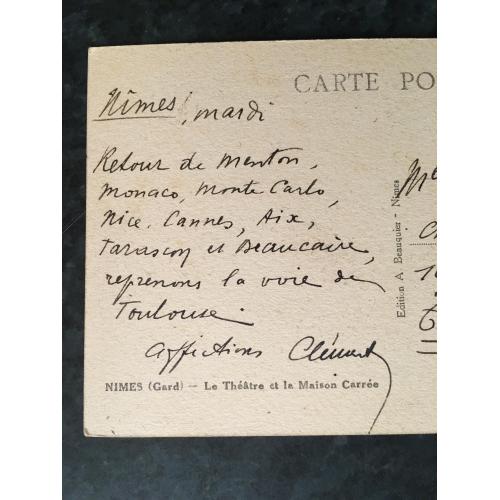 CARTE PO
Nîmes, mardi
Retour de Menton,
Monaco, Monte Carlo,
Nice, Cannes, Aix,
Tarascon et Beaucaire,
reprenons la voie de
Toulouse.
Affections Clément
NIMES (Gard) — Le Théâtre et la Maison Carrée
Edition A Beauquier - Nimes